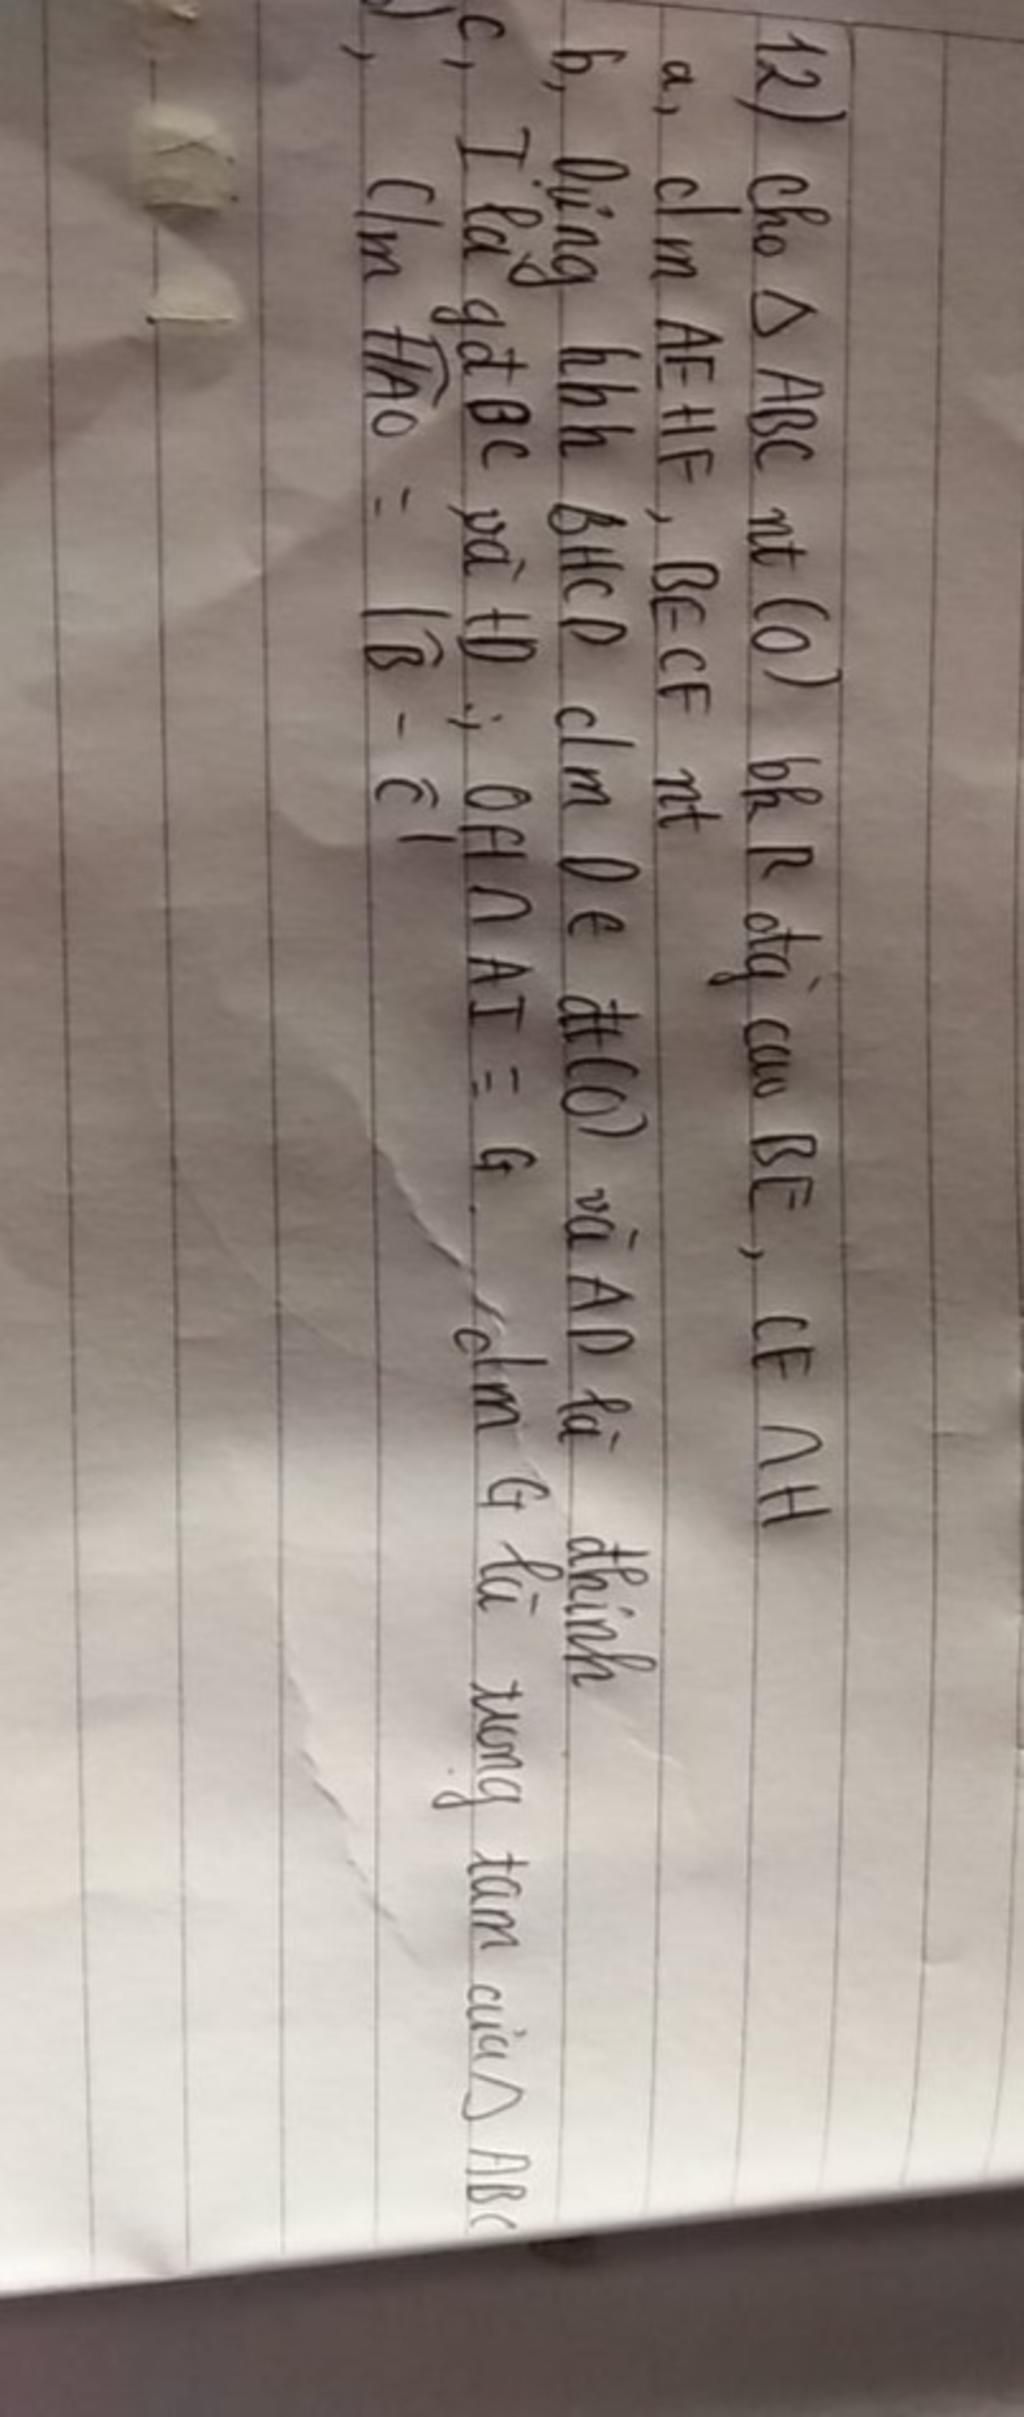 12) Cho Δ ABC nt (O) bk R đg cao BE, CF ∩ H
a, c/m AEHF, BECF nt
b, Dựng hbh BHCD c/m D ∈ đt(O) và AD là đkính
c, I là gđ BC và HD ; OH ∩ AI ≡ G. c/m G là trọng tam của Δ ABC
), C/m HAO = |B̂ - Ĉ|